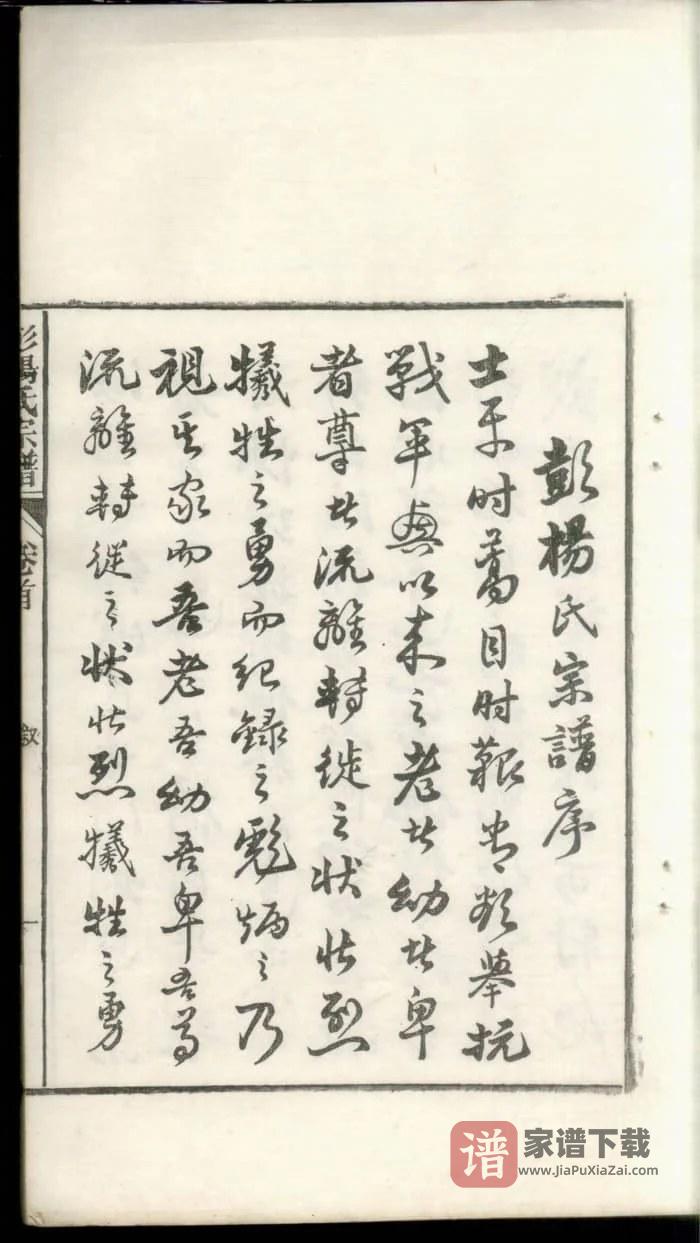 彭楊氏宗譜序
士于时蒿目时艱嘗欲舉抗
戰军興以来之老者幼者卑
者尊者流離轉徙之状壮烈
犧牲之勇而紀録之彪炳之乃
視其家而吾老吾幼吾卑吾尊
流離轉徙之状壮烈犧牲之勇
彭楊氏宗譜
卷首
叙
一
谱
家谱下载
www.JiaPuXiaZai.com